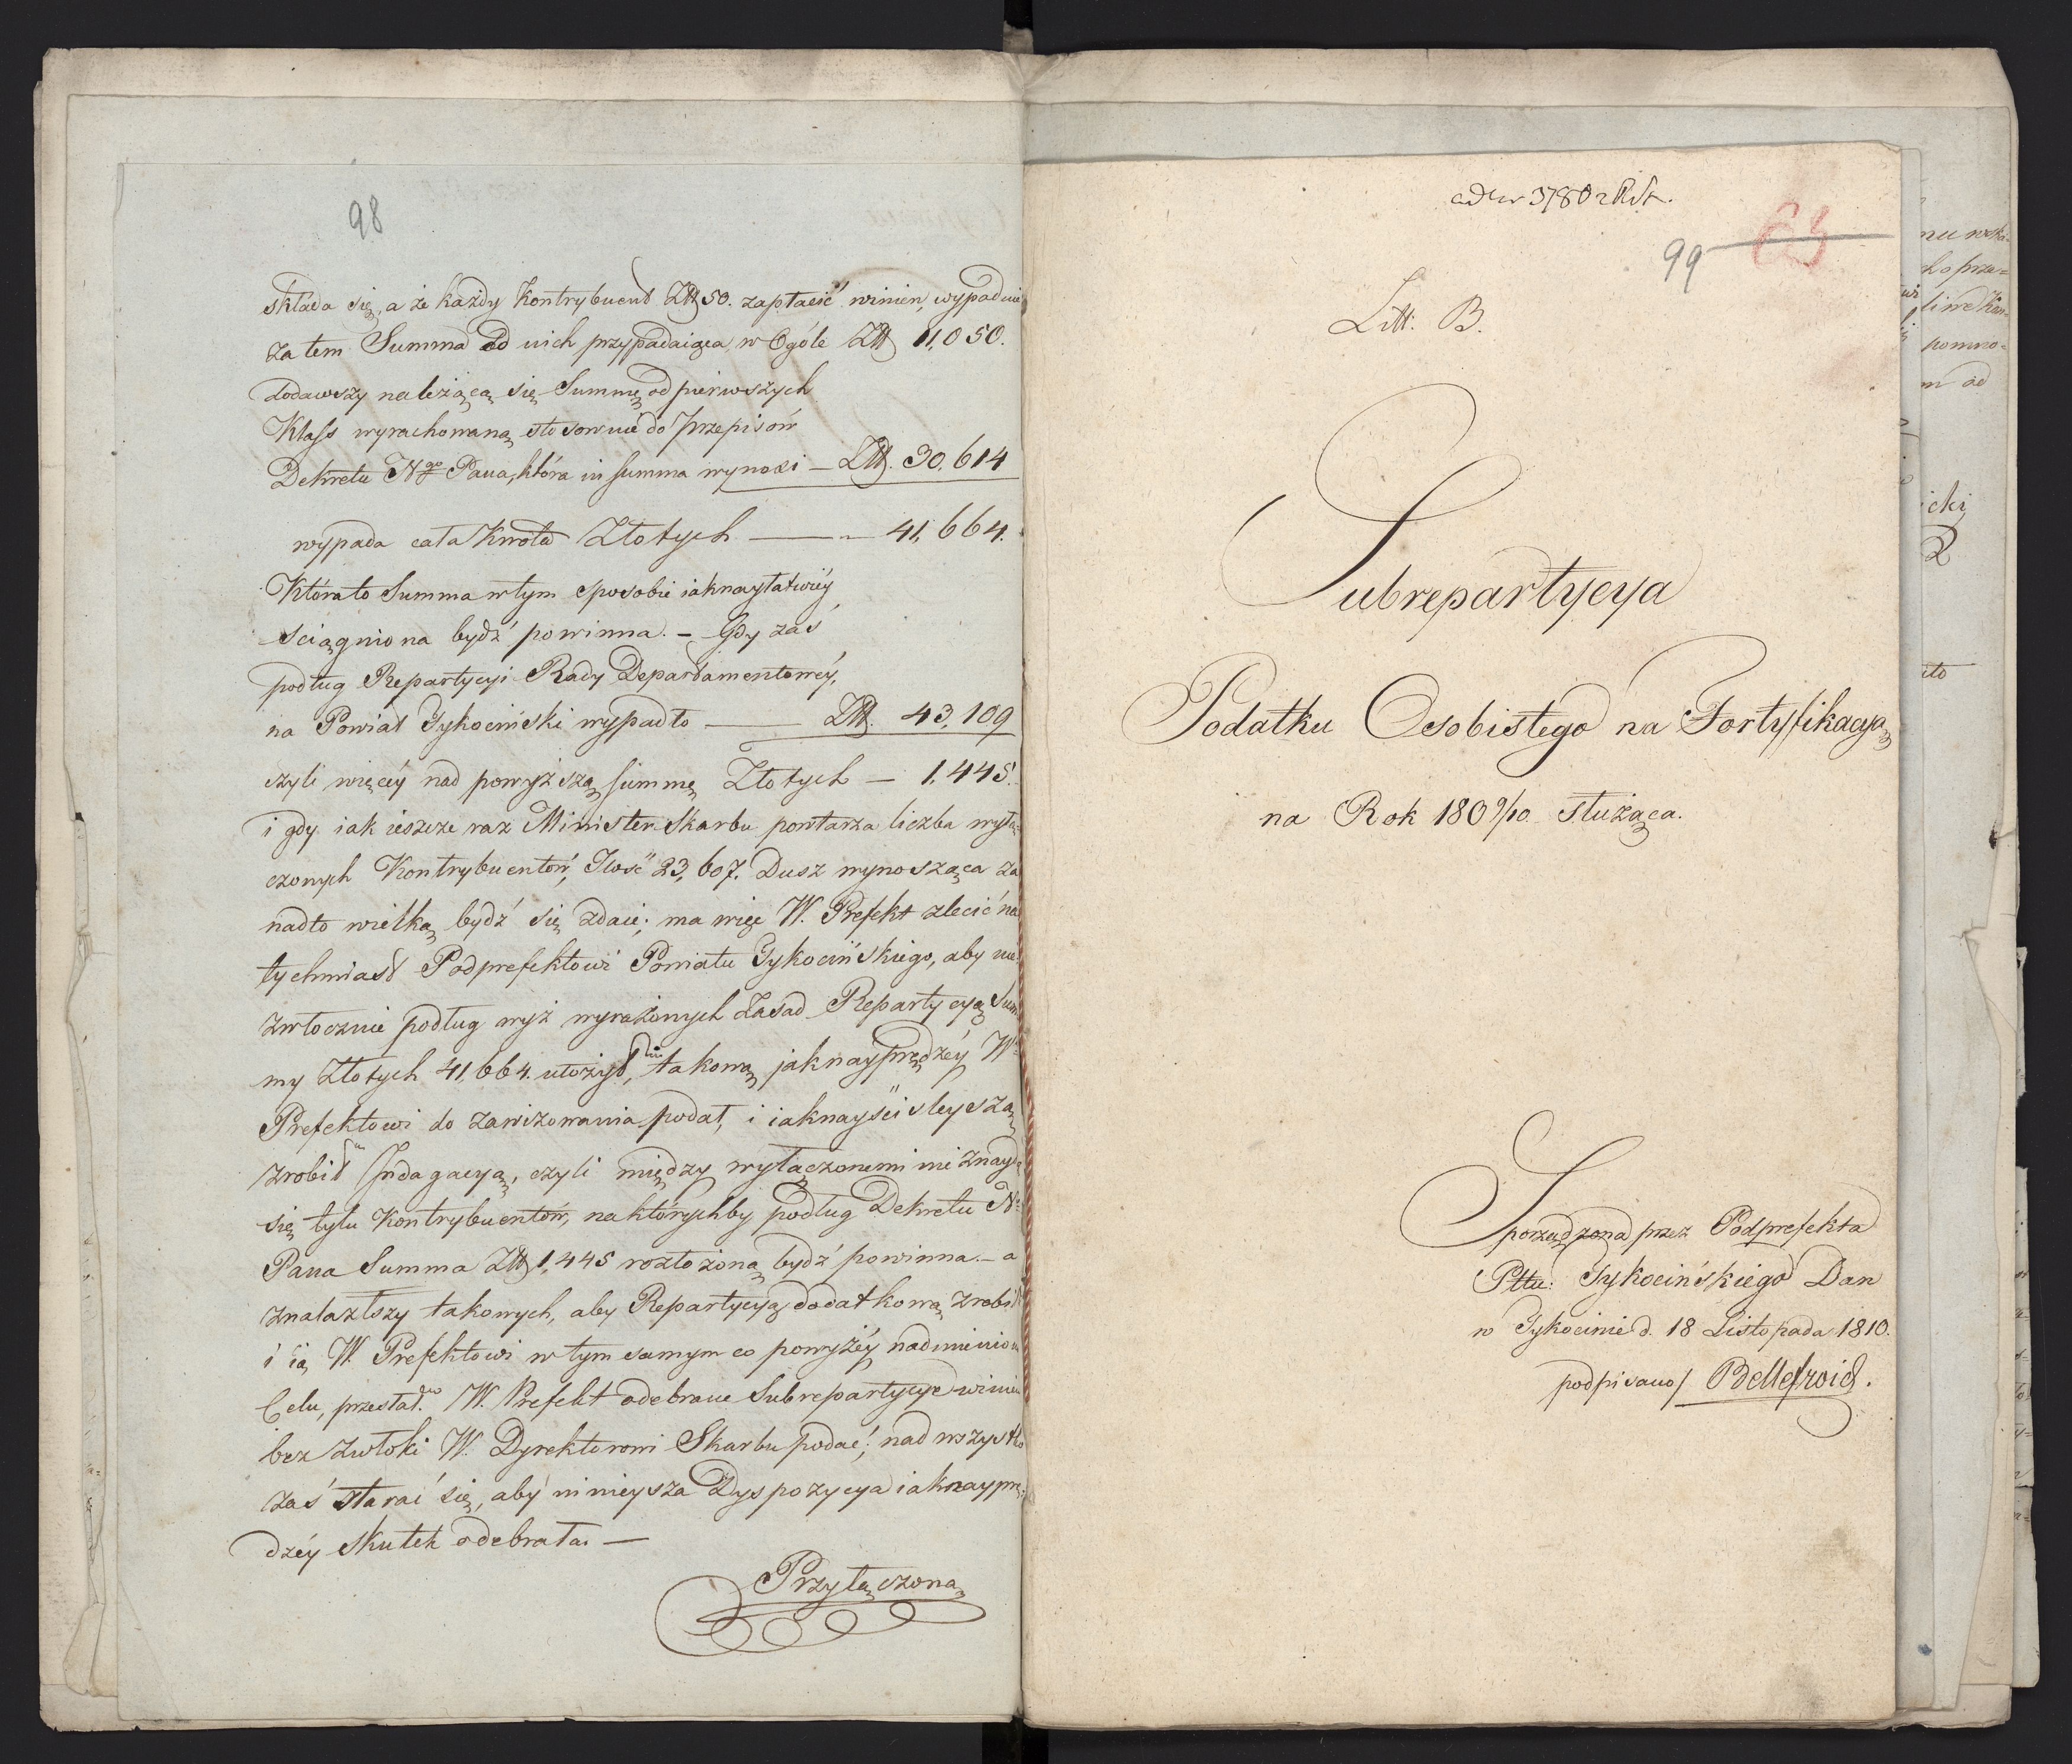 98
składa się, a że każdy Kontrybuent Złł 50. zapłacić winien, wypadnie
zatem Summa od nich przypadaiąca w Ogóle Złł 11,050.
dodawszy należącą się Summę od pierwszych
Klass wyrachowaną stosownie do Przepisów
Dekretu Ngo Pana, która in summa wynosi — Złł. 30,614
wypada cała Kwota Złotych —— 41,664.
Która to Summa w tym sposobie iaknayłatwiéy
ściągniona bydź powinna. — Gdy zaś
podług Repartycyi Rady Departamentowéy,
na Powiat Tykociński wypadło —— Złł. 43,109
czyli więcéy nad powyższą summę Złotych — 1,445.
i gdy iak ieszcze raz Minister Skarbu powtarza liczba wyłą-
czonych Kontrybuentów, Ilość 23,607. Dusz wynosząca za
nadto wielką bydź się zdaie; ma więc W. Prefekt zlecić na
tychmiast Podprefektowi Powiatu Tykocińskiego, aby nie
zwłocznie podług wyż wyrażonych Zasad Repartycyą Sum
my Złotych 41,664. ułożył, takową jaknayprędzéy W.
Prefektowi do zawizowania podał, i iaknayściśleyszą
zrobił Indagacyą, czyli między wyłączonemi nie znayd
się tylu Kontrybuentów, na którychby podług Dekretu N.
Pana Summa Złł 1,445 rozłożoną bydź powinna. — a
znalazłszy takowych, aby Repartycyą dodatkową zrobił
i ią W. Prefektowi w tym samym co powyżéy nadmienion
Celu, przesłał. W. Prefekt odebrane Subrepartycye winien
bez zwłoki W. Dyrektorowi Skarbu podać; nad wszystko
zaś starać się, aby ninieysza Dyspozycya iaknayprę-
dzéy skutek odebrała. —
Przyłączoną
3780
99
63
Litt: B.
Subrepartycya
Podatku Osobistego na Fortyfikacyą
na Rok 1809/10 służąca.
Sporządzona przez Podprefekta
Pttu: Tykocińskiego Dan
w Tykocinie d. 18 Listopada 1810.
podpisano/ Bellefroid.